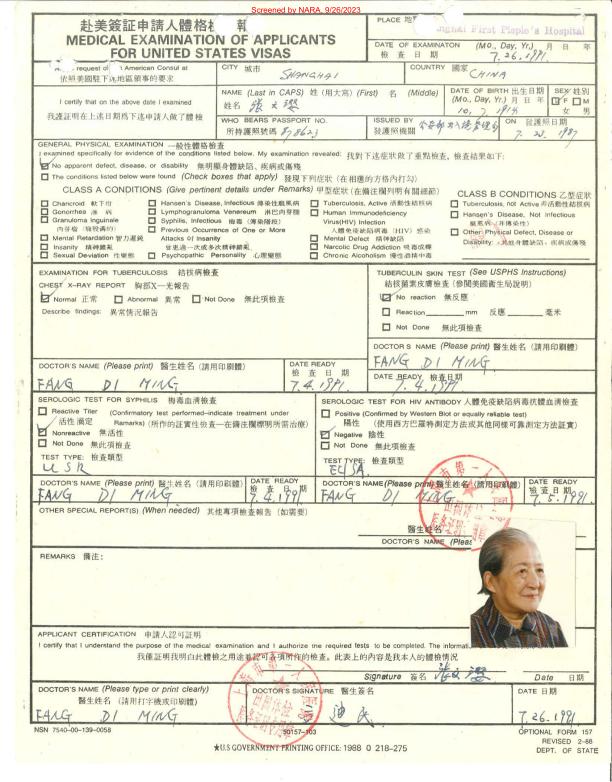 Screened by NARA, 9/26/2023
赴美簽証申請人體格檢 報
MEDICAL EXAMINATION OF APPLICANTS
FOR UNITED STATES VISAS
PLACE 地
Shanghai First People's Hospital
DATE OF EXAMINATON (Mo., Day, Yr.) 月 日 年
檢 查 日 期 7.26.1991
request of American Consul at
依照美國駐下述地區領事的要求
CITY 城市
SHANGHAI
COUNTRY 國家
CHINA
I certify that on the above date I examined
我謹証明在上述日期爲下述申請人做了體檢
NAME (Last in CAPS) 姓 (用大寫) (First) 名 (Middle)
姓名 張
DATE OF BIRTH 出生日期
(Mo., Day, Yr.) 月 日 年
SEX 性別
F M
女 男
WHO BEARS PASSPORT NO.
所持護照號碼
ISSUED BY
發護照機關
ON 發護照日期
GENERAL PHYSICAL EXAMINATION 一般性體格檢查
I examined specifically for evidence of the conditions listed below. My examination revealed: 我對下述症狀做了重點檢查。檢查結果如下:
No apparent defect, disease, or disability 無明顯身體缺陷、疾病或傷殘
The conditions listed below were found (Check boxes that apply) 發現下列症狀 (在相應的方格內打勾)
CLASS A CONDITIONS (Give pertinent details under Remarks) 甲型症狀 (在備注欄列明有關細節)
CLASS B CONDITIONS 乙型症狀
Chancroid 軟下疳
Gonorrhea 淋 病
Granuloma Inguinale
Mental Retardation 智力遲鈍
Insanity 精神錯亂
Sexual Deviation 性變態
Hansen's Disease, Infectious 傳染性痲風病
Lymphogranuloma Venereum 淋巴肉芽腫
Syphilis, Infectious 梅毒 (傳染階段)
Previous Occurrence of One or More
Attacks of Insanity
曾患過一次或多次精神錯亂
Psychopathic Personality 心理變態
Tuberculosis, Active 活動性結核病
Human Immunodeficiency
Virus(HIV) Infection
人體免疫缺陷病毒 (HIV) 感染
Mental Defect 精神缺陷
Narcotic Drug Addiction 吸毒成癖
Chronic Alcoholism 慢性酒精中毒
Tuberculosis, not Active 非活動性結核病
Hansen's Disease, Not Infectious
痲風病 (非傳染性)
Other Physical Defect, Disease or
Disability 其他身體缺陷、疾病或傷殘
EXAMINATION FOR TUBERCULOSIS 結核病檢查
CHEST X-RAY REPORT 胸部X—光報告
Normal 正常 Abnormal 異常 Not Done 無此項檢查
Describe findings: 異常情況報告
TUBERCULIN SKIN TEST (See USPHS Instructions)
結核菌素皮膚檢查 (參閱美國衛生局說明)
No reaction 無反應
Reaction mm 反應 毫米
Not Done 無此項檢查
DOCTOR'S NAME (Please print) 醫生姓名 (請用印刷體)
FANG DI MING
DATE READY
檢 查 日 期
7.4.1991.
DOCTOR'S NAME (Please print) 醫生姓名 (請用印刷體)
FANG DI MING
DATE READY 檢 查 日 期
7.4.1991.
SEROLOGIC TEST FOR SYPHILIS 梅毒血清檢查
Reactive Titer (Confirmatory test performed–indicate treatment under
活性 滴定 Remarks) (所作的証實性檢查—在備注欄標明所需治療)
Nonreactive 無活性
Not Done 無此項檢查
TEST TYPE: 檢查類型
USR
SEROLOGIC TEST FOR HIV ANTIBODY 人體免疫缺陷病毒抗體血清檢查
Positive (Confirmed by Western Blot or equally reliable test)
陽性 (使用西方巴羅特測定方法或其他同樣可靠測定方法証實)
Negative 陰性
Not Done 無此項檢查
TEST TYPE: 檢查類型
ELISA.
DOCTOR'S NAME (Please print) 醫生姓名 (請用印刷體)
FANG DI MING
DATE READY
檢 查 日 期
7.4.1991
DOCTOR'S NAME (Please print) 醫生姓名 (請用印刷體)
FANG DI MING
DATE READY
檢 查 日 期
7.5.1991.
OTHER SPECIAL REPORT(S) (When needed) 其他專項檢查報告 (如需要)
醫生姓名
DOCTOR'S NAME (Pleas
REMARKS 備注:
APPLICANT CERTIFICATION 申請人認可証明
I certify that I understand the purpose of the medical examination and I authorize the required tests to be completed. The informa
我僅証明我明白此體檢之用途並認可各項所作的檢查。此表上的內容是我本人的體檢情況
Signature 簽名
Date 日期
DOCTOR'S NAME (Please type or print clearly)
醫生姓名 (請用打字機或印刷體)
FANG DI MING
DOCTOR'S SIGNATURE 醫生簽名
DATE 日期
7.26.1991
NSN 7540-00-139-0058
50157–103
OPTIONAL FORM 157
REVISED 2-88
DEPT. OF STATE
★U.S GOVERNMENT PRINTING OFFICE: 1988 0 218-275